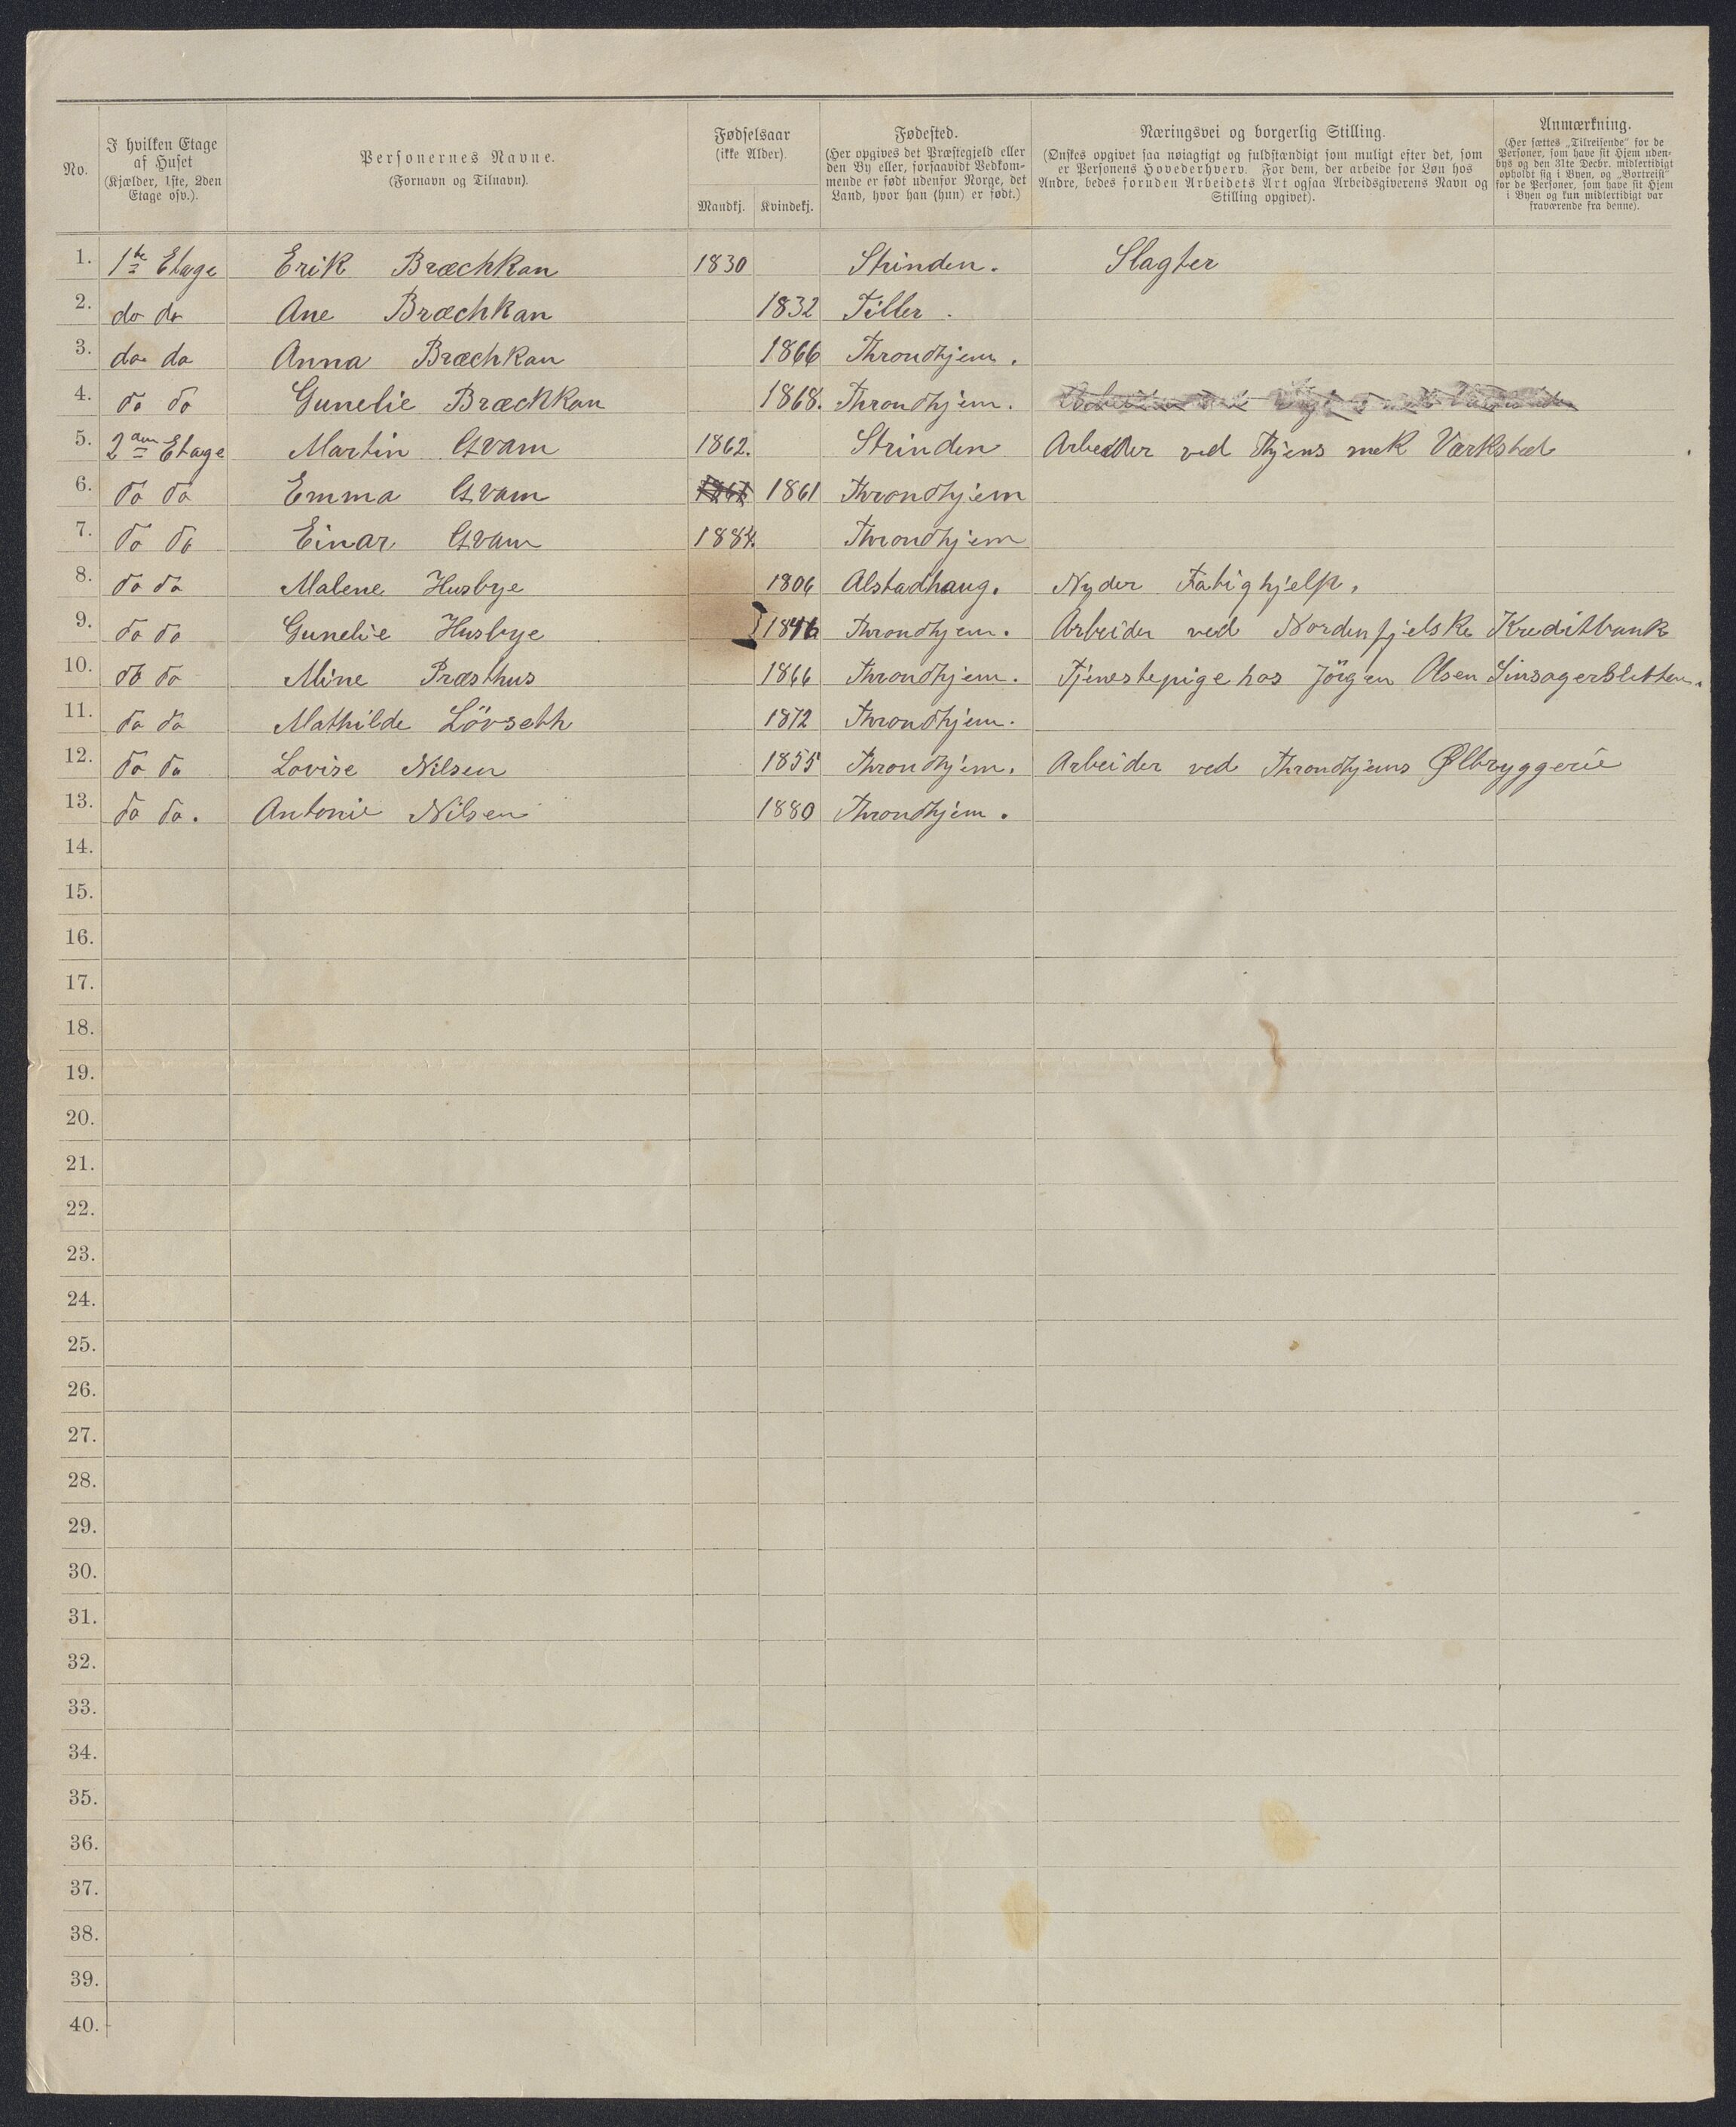 No.
I hvilken Etage
af Huset
(Kjælder, 1ste, 2den
Etage osv.).
Personernes Navne.
(Fornavn og Tilnavn).
Fødselsaar
(ikke Alder).
Mandkj. Kvindekj.
Fødested.
(Her opgives det Præstegjeld eller
den By eller, forsaavidt Vedkom-
mende er født udenfor Norge, det
Land, hvor han (hun) er født.)
Næringsvei og borgerlig Stilling.
(Ønskes opgivet saa nøiagtigt og fuldstændigt som muligt efter det, som
er Personens Hovederhverv. For dem, der arbeide for Løn hos
Andre, bedes foruden Arbeidets Art ogsaa Arbeidsgiverens Navn og
Stilling opgivet).
Anmærkning.
(Her sættes „Tilreisende" for de
Personer, som have sit Hjem uden-
bys og den 31te Decbr. midlertidigt
opholdt sig i Byen, og „Bortreist"
for de Personer, som have sit Hjem
i Byen og kun midlertidigt var
fraværende fra denne).
1. 1te Etage Erik Bræchkan 1830 Strinden. Slagter
2. do do Ane Bræchkan 1832 Tiller.
3. do do Anna Bræchkan 1866 Throndhjem.
4. do do Gunelie Bræchkan 1868. Throndhjem.
5. 2den Etage Martin Qvam 1862. Strinden Arbeider ved Thjens mek Værksted
6. do do Emma Qvam 1861 1861 Throndhjem
7. do do Einar Qvam 1884. Throndhjem
8. do do Malene Husbye 1806 Alstadhaug. Nyder Fatighjelp.
9. do do Gunelie Husbye 1846 Throndhjem. Arbeider ved Nordenfjelske Kreditbank
10. do do Mine Præsthus 1866 Throndhjem. Tjenestepige hos Jörgen Olsen Sinsagersletten.
11. do do Mathilde Lövseth 1872 Throndhjem.
12. do do Lovise Nilsen 1855 Throndhjem. Arbeider ved Throndhjems Ølbryggerie
13. do do. Antonie Nilsen 1880 Throndhjem.
14.
15.
16.
17.
18.
19.
20.
21.
22.
23.
24.
25.
26.
27.
28.
29.
30.
31.
32.
33.
34.
35.
36.
37.
38.
39.
40.